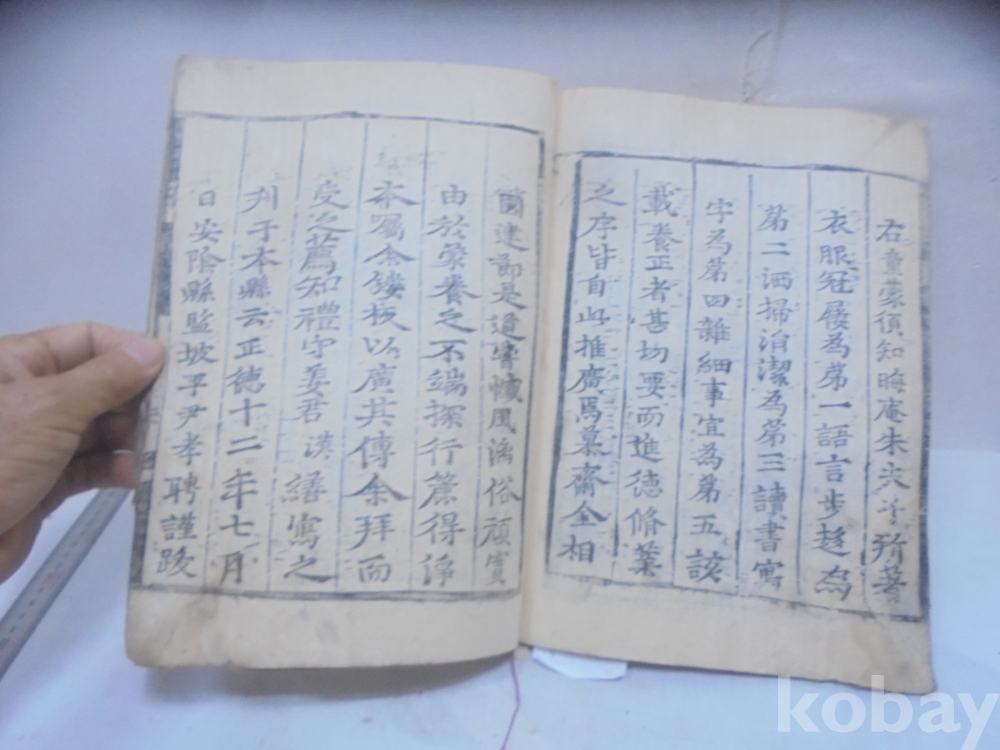 右童蒙須知晦庵朱夫子所著
衣服冠屨為第一語言步趍為
第二洒掃涓潔為第三讀書寫
字為第四雜細事宜為第五該
載養正者甚切要而進德脩業
之序皆自此推廣焉慕齋金相
國建節是道嘗慨風漓俗頑實
由於蒙養之不端探行篋得淨
本屬余鋟板以廣其傳余拜而
受之薦知禮守姜君漢繕寫之
刋于本縣云正德十二年七月
日安陰縣監坡平尹孝聘謹跋
kobay